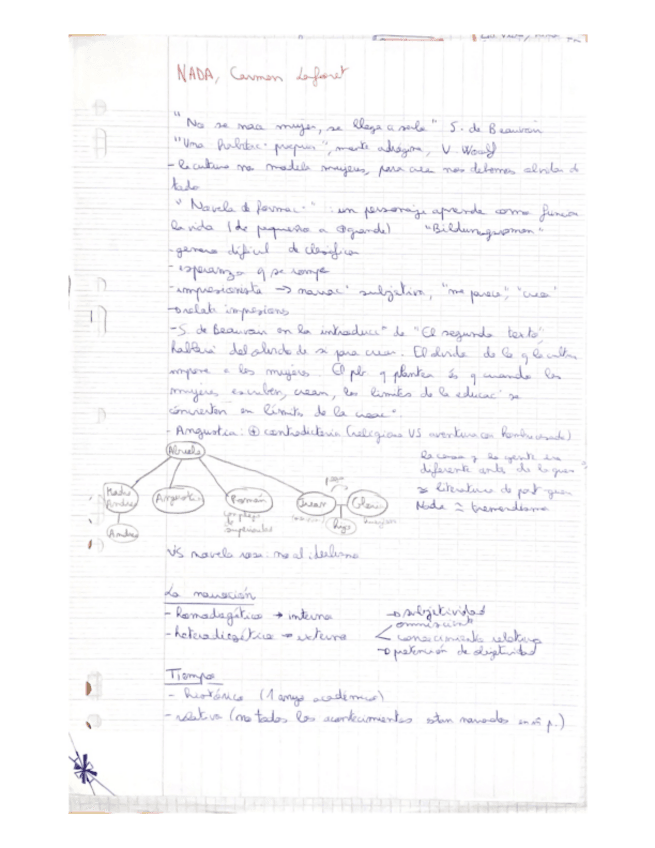 NADA, Carmen Laforet
"No se nace mujer, se llega a serlo" S. de Beauvoir
"Una habitac° propria", mente andrógina, V. Woolf
- la cultura no modela mujeres, para crear nos debemos olvidar de
todo
"Novela de formac°" : un personaje aprende como funciona
la vida (de pequeña a grande) "Bildungsroman"
- genero dificil de clasificar
- esperanza q se rompe
- impresionista → narrac° subjetiva, "me parece", "creo"
→ relata impresiones
- S. de Beauvoir en la introducc° de "El segundo sexo",
hablará del olvido de si para crear. El olvido de lo q la cultura
impone a las mujeres. El pb q plantea es q cuando las
mujeres escriben, crean, los limites de la educac° se
convierten en limites de la creac°
- Angustias: ⊕ contradictoria (religiosa VS aventura con hombre casado)
Abuela
la casa y la gente era
diferente antes de la guerra
Madre
Andrea
Angustias
Román
Juan
Gloria
complejo
de
superioridad
hijo
Andrea
≈ literatura de post guerra
Nada ≈ tremendismo
VS novela rosa: no al idealismo
La narración
- homodiegética → interna
- heterodiegética → externa
→ subjetividad
omnisciente
conocimiento relativo
→ pretensión de objetividad
Tiempo
- histórico (1 anyo académico)
- relativo (no todos los acontecimientos estan narrados en p.)